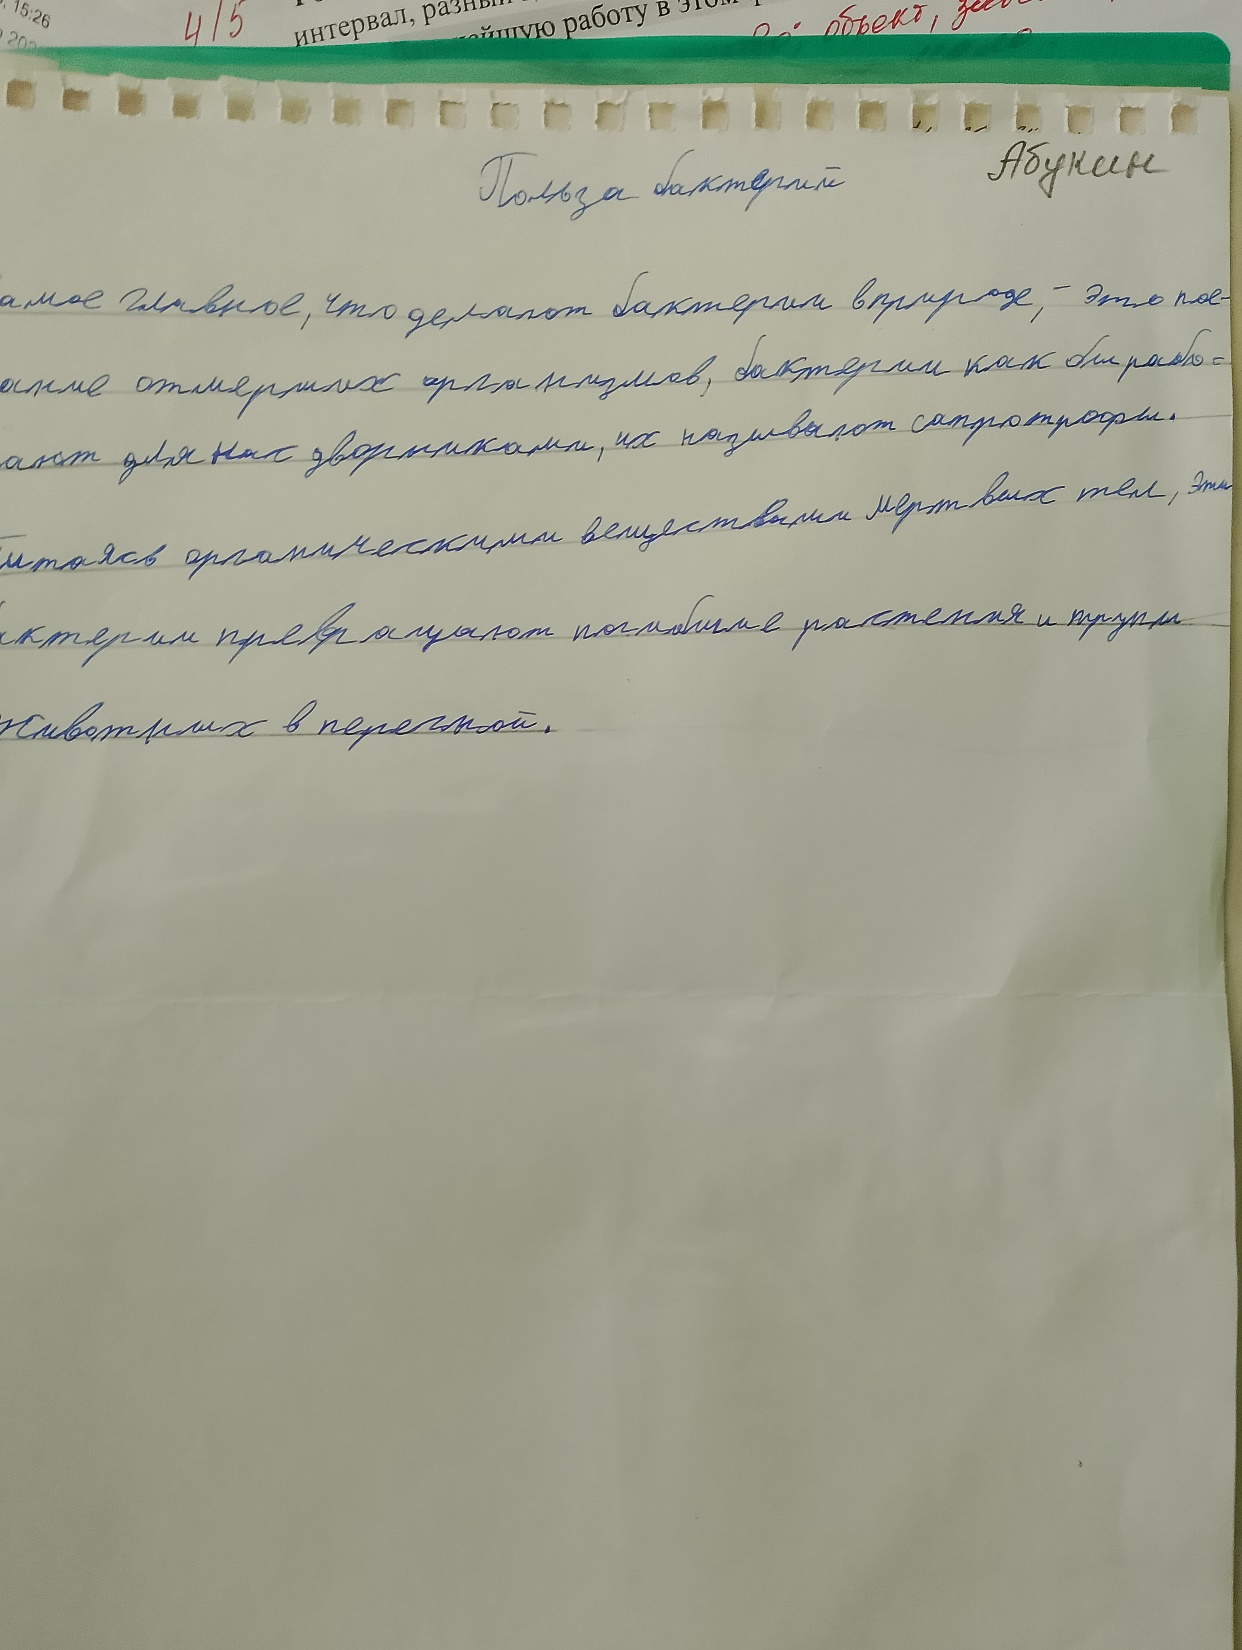 15:26
4/5
интервал, разный
работу в этом
объект,
Абукин
Польза бактерий
амое главное, что делают бактерии в природе, - это пое-
ание отмерших организмов, бактерии как бы рабо-
ают для нас дворниками, их называют сапротрофы.
итаясь органическими веществами мертвых тел, эти
актерии превращают погибшие растения и трупы
животных в перегной.